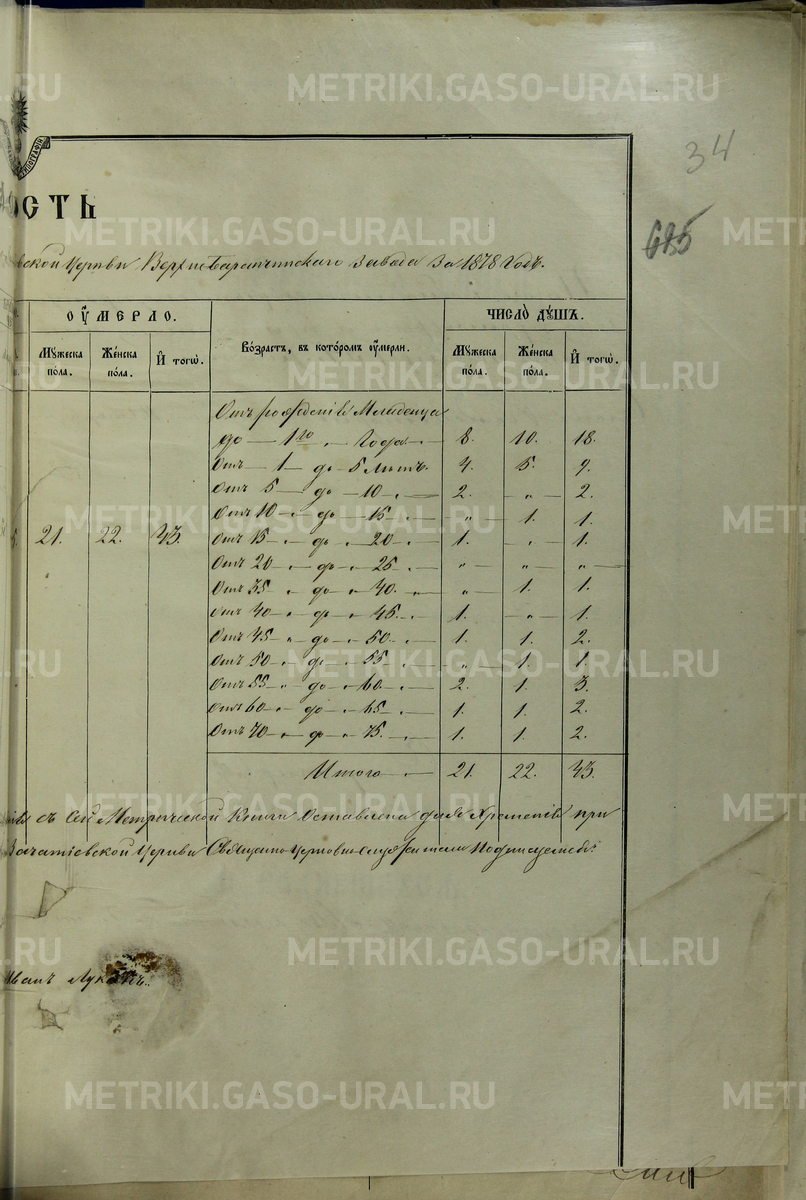 METRIKI.GASO-URAL.RU
34
ОСТЬ
685
вской Церкви Верхнебаранчинскаго завода за 1878 Годъ.
ОУМЕРЛО.
ЧИСЛО ДУШЪ.
Мужеска пола.
Женска пола.
И тогѡ.
Возрастъ, въ которомъ оумерли.
Мужеска пола.
Женска пола.
И тогѡ.
Отъ рожденія Младенца
до — 1го „ Года — 8. 10. 18.
Отъ — 1 — до — 5 лѣтъ. 4. 5. 9.
Отъ 5 — до — 10 „ — 2. — „ — 2.
Отъ 10 „ до „ 15 „ — „ — 1. 1.
21. 22. 43. Отъ 15 „ до „ 20 „ — 1. „ — 1.
Отъ 20 „ до „ 25 „ — „ — „ — „ —
Отъ 35 „ до „ 40. „ — „ — 1. 1.
Отъ 40 „ до „ 45. „ — 1. — „ — 1.
Отъ 45 „ до „ 50. „ — 1. 1. 2.
Отъ 50 „ до „ 55 „ — „ — 1. 1.
Отъ 55 „ до „ 60 „ — 2. 1. 3.
Отъ 60 „ до „ 65 „ — 1. 1. 2.
Отъ 70 „ до „ 75. „ — 1. 1. 2.
Итого „ — 21. 22. 43.
съ сей Метрической Книги Оставлена для Храненія при
Зачатіевской Церкви Священно-Церковно-Служителми Подписуемся:
Иванъ Лука